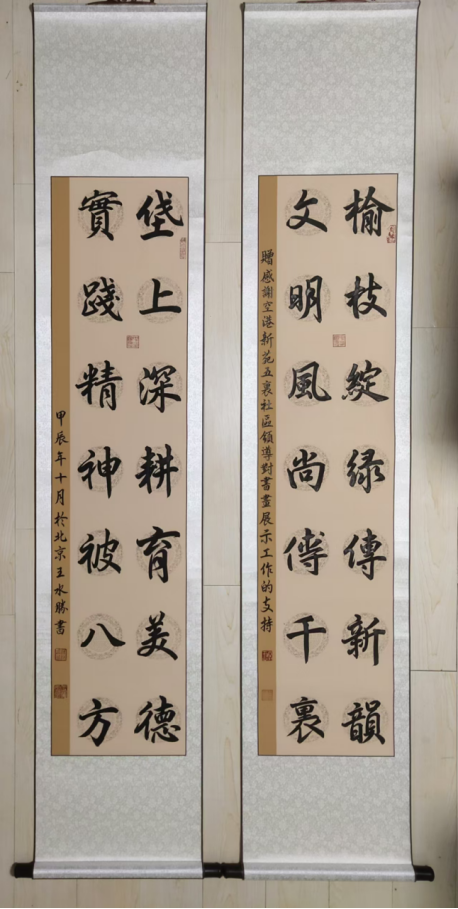 榆枝綻绿傳新韻
文明風尚傳千裏
贈感謝空港新苑五裏社區領導對書畫展示工作的支持
垡上深耕育美德
實踐精神被八方
甲辰年十月於北京王水勝書